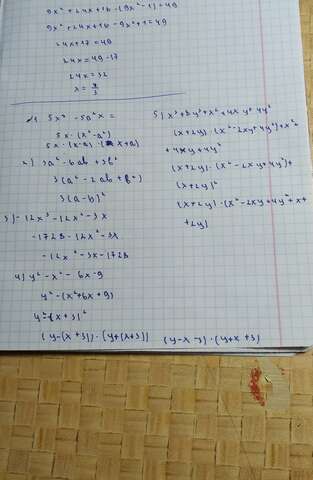 9x² + 24x + 16 - (9x² - 1) = 49
9x² + 24x + 16 - 9x² + 1 = 49
24x + 17 = 49
24x = 49 - 17
24x = 32
x = 4/3
5x³ - 5a²x =
5x · (x² - a²)
5x · (x - a) · (x + a)
2) 3a² - 6ab + 3b²
3(a² - 2ab + b²)
3(a - b)²
3) - 12x³ - 12x² - 3x
- 1728 - 12x² - 3x
- 12x² - 3x - 1728
4) y² - x² - 6x - 9
y² - (x² + 6x + 9)
y² - (x + 3)²
(y - (x + 3)) · (y + (x + 3))
(y - x - 3) · (y + x + 3)
5) x³ + 8y³ + x² + 4xy + 4y²
(x + 2y) · (x² - 2xy + 4y²) + x² +
+ 4xy + 4y²
(x + 2y) · (x² - 2xy + 4y²) +
(x + 2y)²
(x + 2y) · (x² - 2xy + 4y² + x +
+ 2y)